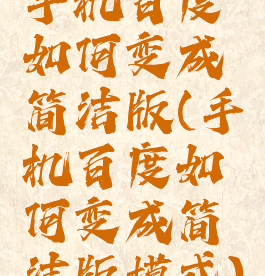 手机百度
如何变成
简洁版(手
机百度如
何变成简
洁版模式)